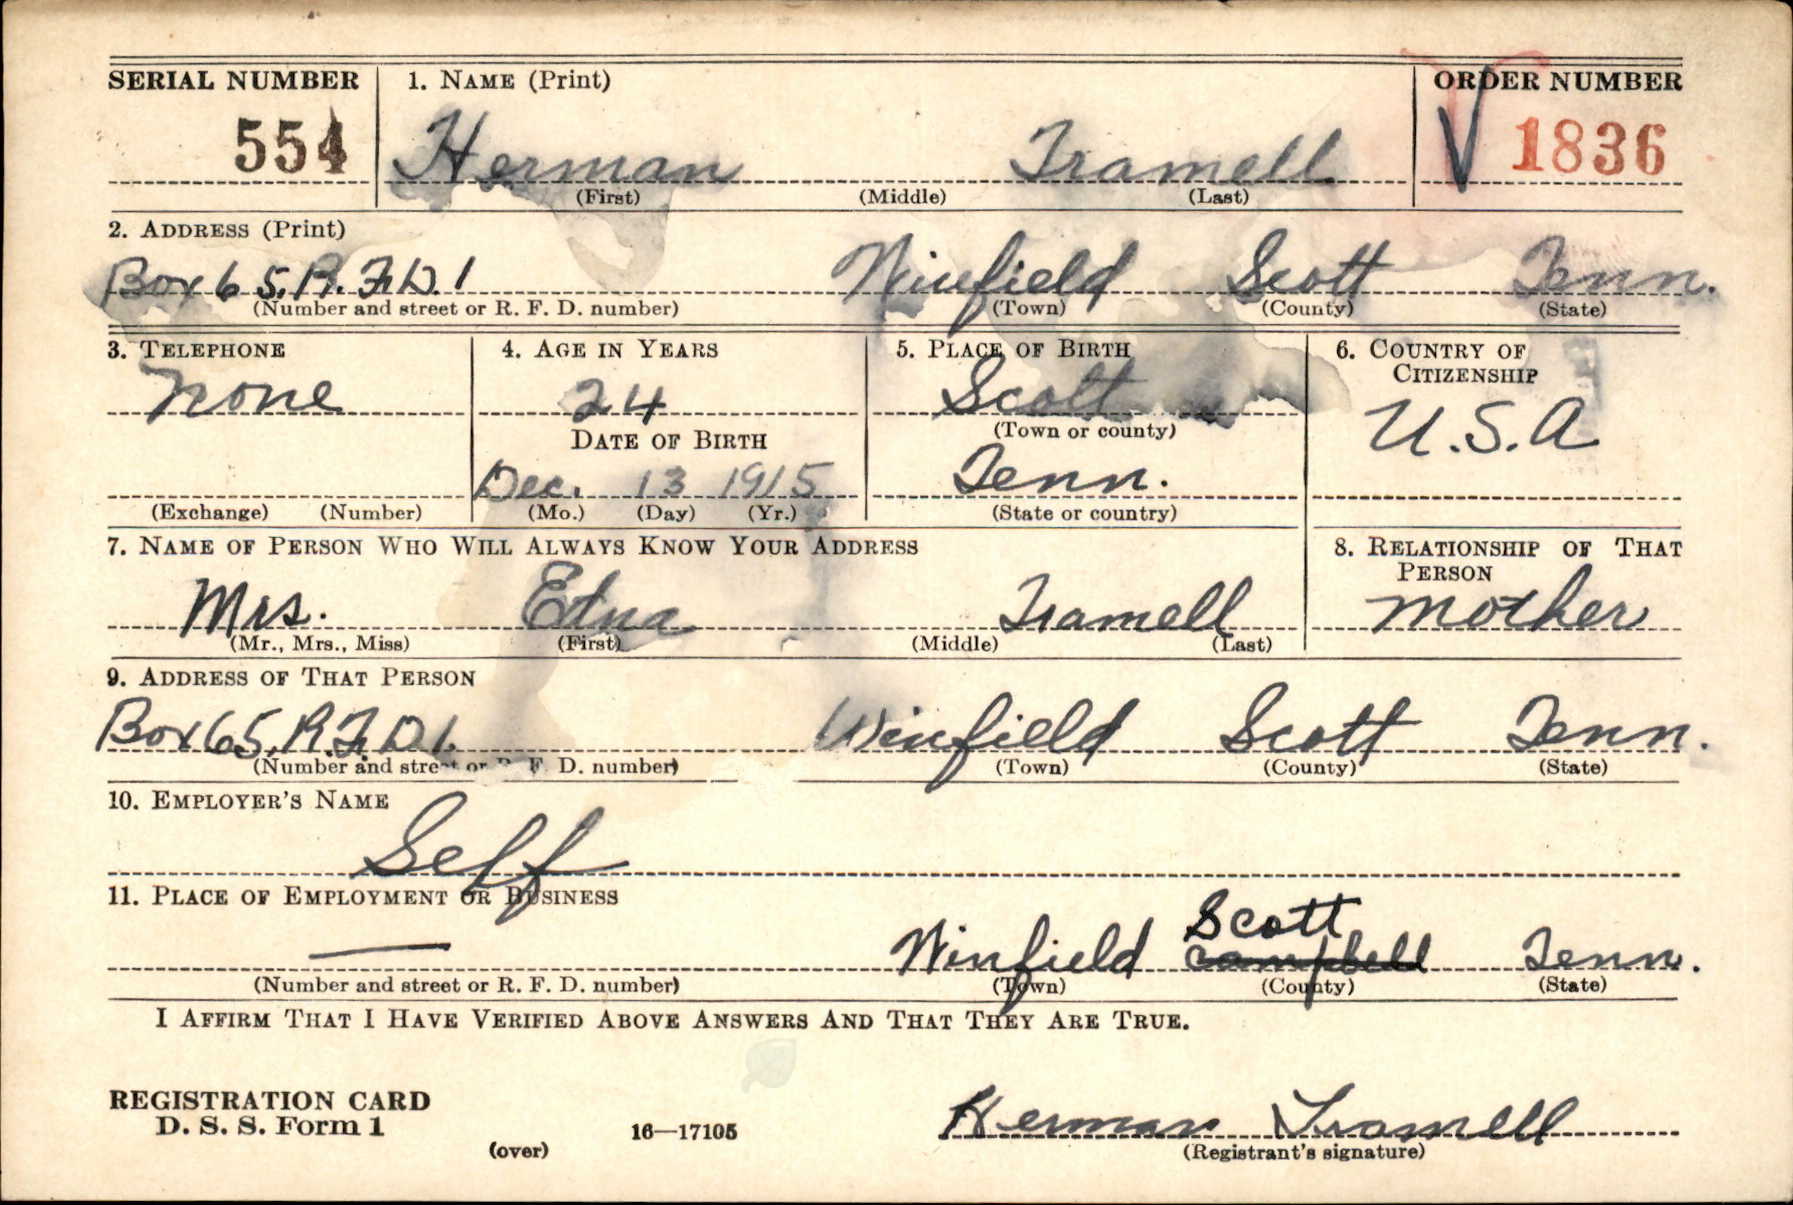 SERIAL NUMBER 1. NAME (Print) ORDER NUMBER
554 Herman Tramell V 1836
(First) (Middle) (Last)
2. ADDRESS (Print)
Box 65, R.F.D. 1 Winfield Scott Tenn.
(Number and street or R. F. D. number) (Town) (County) (State)
3. TELEPHONE 4. AGE IN YEARS 5. PLACE OF BIRTH 6. COUNTRY OF CITIZENSHIP
None 24 Scott U.S.A
DATE OF BIRTH (Town or county)
Dec. 13 1915 Tenn.
(Exchange) (Number) (Mo.) (Day) (Yr.) (State or country)
7. NAME OF PERSON WHO WILL ALWAYS KNOW YOUR ADDRESS 8. RELATIONSHIP OF THAT PERSON
Mrs. Etna Tramell Mother
(Mr., Mrs., Miss) (First) (Middle) (Last)
9. ADDRESS OF THAT PERSON
Box 65, R.F.D 1. Winfield Scott Tenn.
(Number and street or R. F. D. number) (Town) (County) (State)
10. EMPLOYER'S NAME
Self
11. PLACE OF EMPLOYMENT OR BUSINESS
Scott
— Winfield Campbell Tenn.
(Number and street or R. F. D. number) (Town) (County) (State)
I AFFIRM THAT I HAVE VERIFIED ABOVE ANSWERS AND THAT THEY ARE TRUE.
REGISTRATION CARD
D. S. S. Form 1 Herman Tramell
(over) 16—17105 (Registrant's signature)